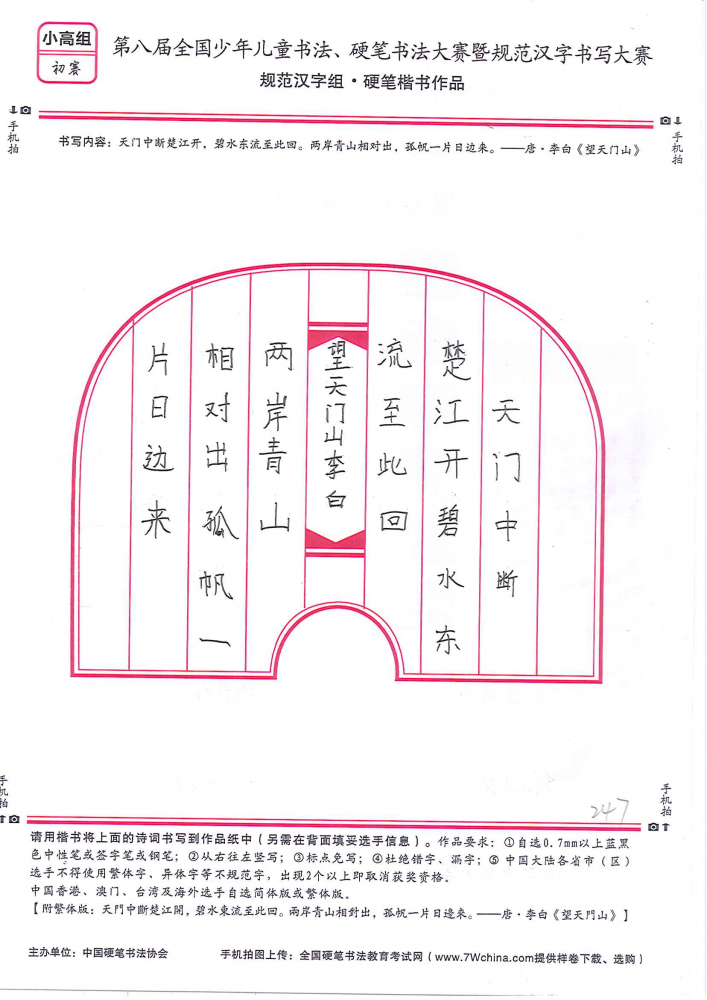 小高组
初赛
第八届全国少年儿童书法、硬笔书法大赛暨规范汉字书写大赛
规范汉字组·硬笔楷书作品
手机拍
手机拍
书写内容：天门中断楚江开，碧水东流至此回。两岸青山相对出，孤帆一片日边来。——唐·李白《望天门山》
天门中断
楚江开碧水东
流至此回
望天门山李白
两岸青山
相对出孤帆一
片日边来
247
手机拍
手机拍
请用楷书将上面的诗词书写到作品纸中（另需在背面填妥选手信息）。作品要求：①自选0.7mm以上蓝黑
色中性笔或签字笔或钢笔；②从右往左竖写；③标点免写；④杜绝错字、漏字；⑤中国大陆各省市（区）
选手不得使用繁体字、异体字等不规范字，出现2个以上即取消获奖资格。
中国香港、澳门、台湾及海外选手自选简体版或繁体版。
【附繁体版：天門中斷楚江開，碧水東流至此回。兩岸青山相對出，孤帆一片日邊來。——唐·李白《望天門山》】
主办单位：中国硬笔书法协会
手机拍图上传：全国硬笔书法教育考试网（www.7Wchina.com提供样卷下载、选购）